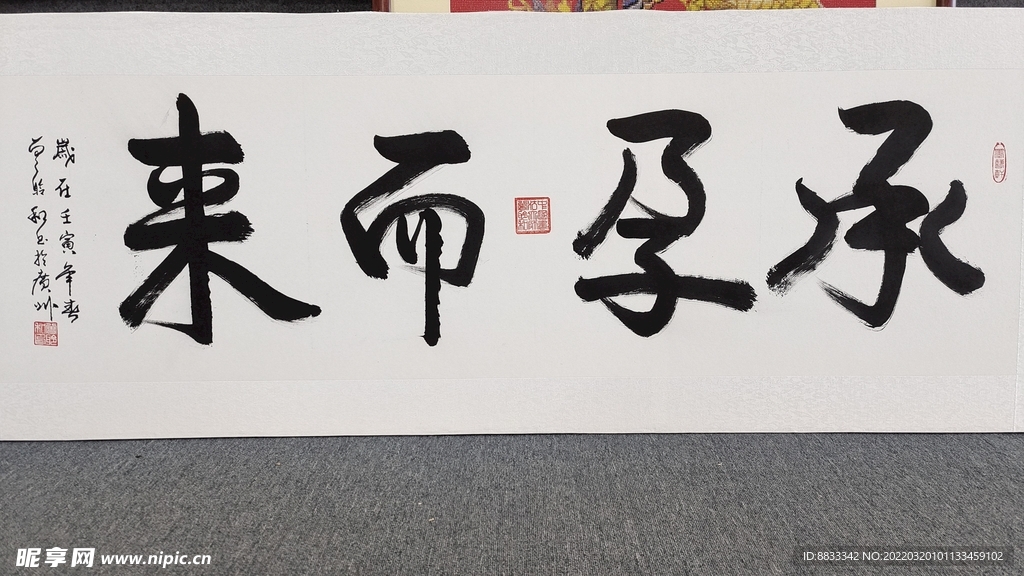 承孕而来
歲在壬寅年春
書於廣州
昵享网 www.nipic.cn
ID:8833342 NO:20220320101133459102